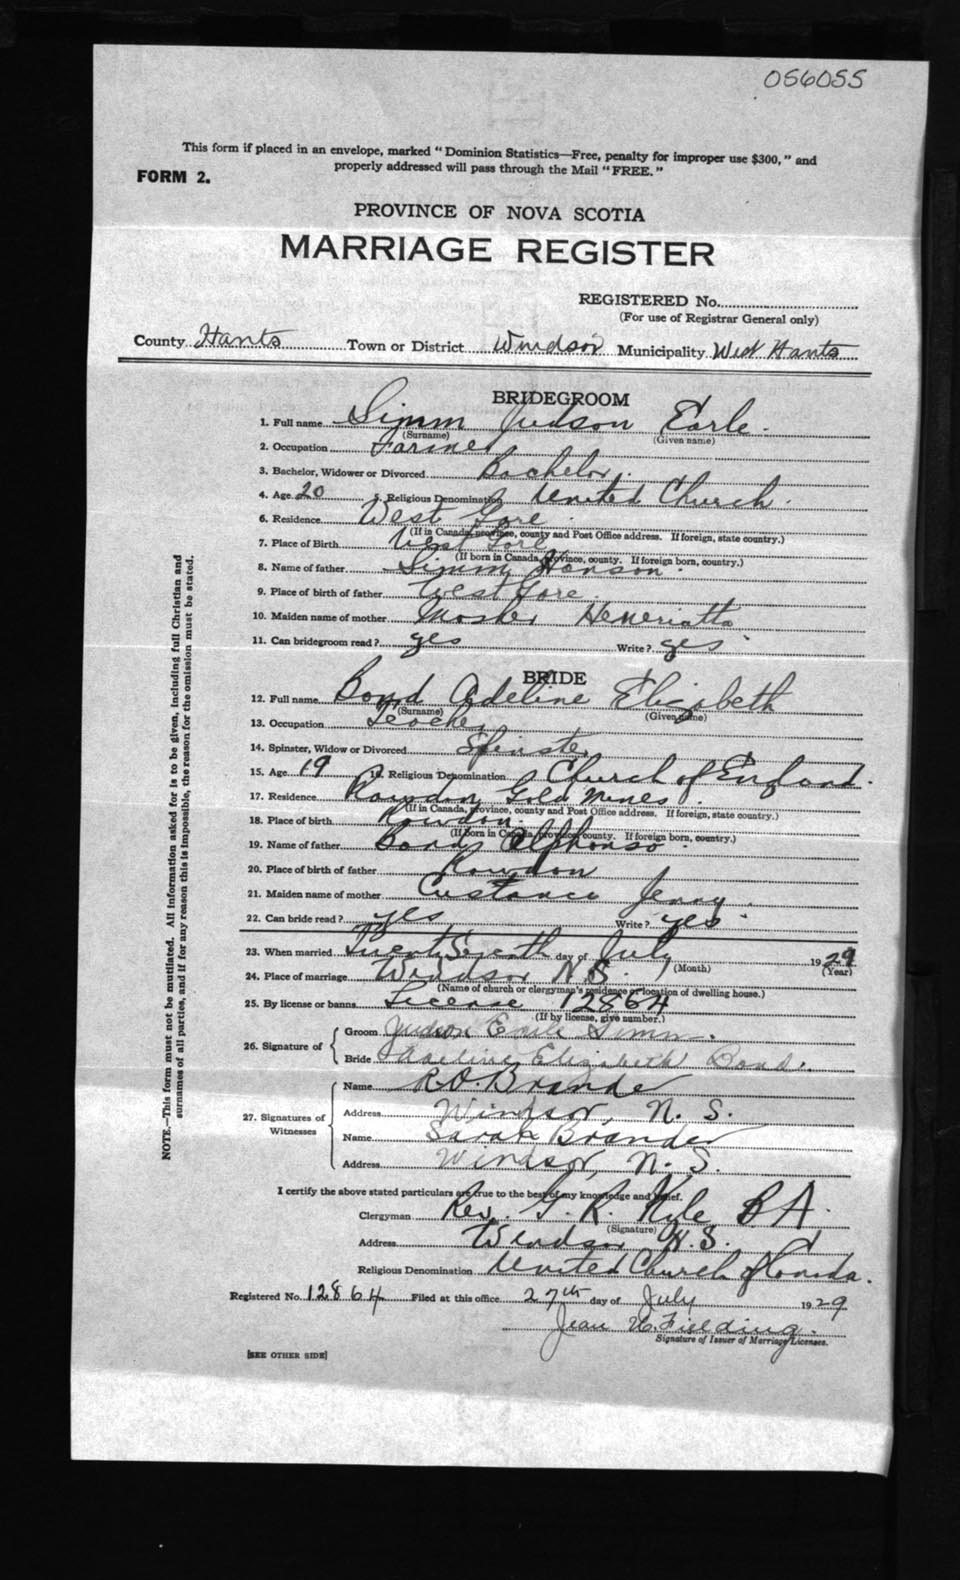 056055
This form if placed in an envelope, marked "Dominion Statistics—Free, penalty for improper use $300," and
properly addressed will pass through the Mail "FREE."
FORM 2.
PROVINCE OF NOVA SCOTIA
MARRIAGE REGISTER
REGISTERED No.
(For use of Registrar General only)
County Hants Town or District Windsor Municipality West Hants
BRIDEGROOM
1. Full name Simm Judson Earle.
(Surname) (Given name)
2. Occupation Farmer
3. Bachelor, Widower or Divorced Bachelor.
4. Age 20 5. Religious Denomination United Church.
6. Residence West Gore
(If in Canada, province, county and Post Office address. If foreign, state country.)
7. Place of Birth West Gore
(If born in Canada, province, county. If foreign born, country.)
8. Name of father Simm, Hanson.
9. Place of birth of father West Gore.
10. Maiden name of mother Mosher Henerietta
11. Can bridegroom read? yes Write? yes
BRIDE
12. Full name Bond Adeline Elizabeth
(Surname) (Given name)
13. Occupation Teacher
14. Spinster, Widow or Divorced Spinster
15. Age 19 16. Religious Denomination Church of England.
17. Residence Rawdon Gold Mines.
(If in Canada, province, county and Post Office address. If foreign, state country.)
18. Place of birth Rawdon.
(If born in Canada, province, county. If foreign born, country.)
19. Name of father Bond, Alphonso.
20. Place of birth of father Rawdon
21. Maiden name of mother Custance Jenny.
22. Can bride read? yes Write? yes
23. When married Twenty Seventh day of July 1929
(Month) (Year)
24. Place of marriage Windsor N.S.
(Name of church or clergyman's residence or location of dwelling house.)
25. By license or banns License 12864
(If by license, give number.)
26. Signature of
Groom Judson Earle Simm.
Bride Adeline Elizabeth Bond.
27. Signatures of Witnesses
Name R.O. Brander
Address Windsor, N. S.
Name Sarah Brander
Address Windsor, N. S.
I certify the above stated particulars are true to the best of my knowledge and belief.
Clergyman Rev. G. R. Kyle B A.
(Signature)
Address Windsor N.S.
Religious Denomination United Church of Canada.
Registered No. 12864 Filed at this office 27th day of July 1929
Jean Fielding.
Signature of Issuer of Marriage Licenses.
[SEE OTHER SIDE]
NOTE.—This form must not be mutilated. All information asked for is to be given, including full Christian and
surnames of all parties, and if for any reason this is impossible, the reason for the omission must be stated.